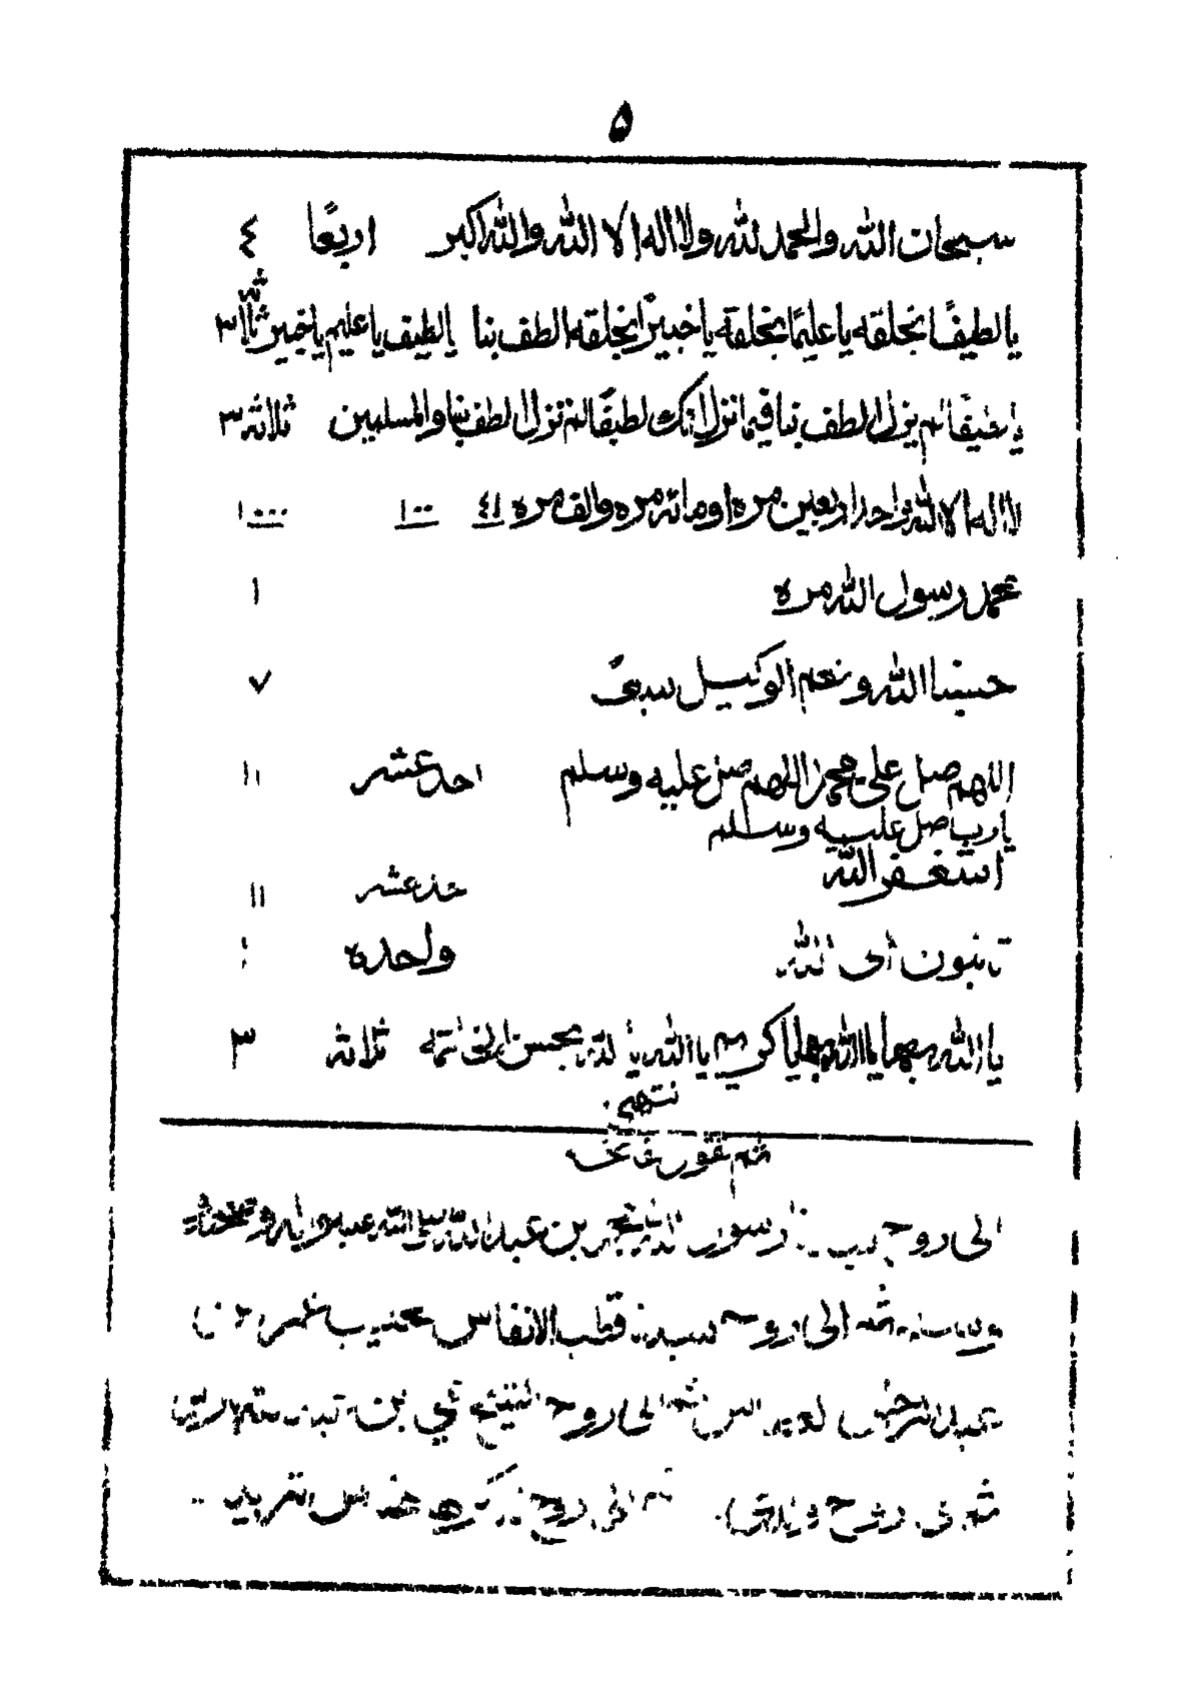 ٥
سبحان الله والحمد لله ولا اله الا الله والله اكبر اربعًا ٤
يا لطيفًا بخلقه يا عليمًا بخلقه يا خبيرًا بخلقه الطف بنا يا لطيف يا عليم يا خبير ثلاثه ٣
يا لطيفًا لم يزل الطف بنا فيما نزل انك لطيفًا لم تزل الطف بنا والمسلمين ثلاثه ٣
لا اله الا الله واحد اربعين مره او مائه مره والف مره ٤١ ١٠٠ ١٠٠٠
محمد رسول الله مره ١
حسبنا الله ونعم الوكيل سبعًا ٧
اللهم صل على محمد اللهم صل عليه وسلم احد عشر ١١
يا رب صل عليه وسلم
استغفر الله حد عشر ١١
تائبون الى الله واحده ١
يا الله بها يا الله بها يا كريم يا الله يا الله بحسن الخاتمه ثلاثه ٣
نتهى.
ثم تقول
الى روح رسول الله محمد بن عبد الله صلى الله عليه واله وصحبه
ثم الى روح سيدنا قطب الانفاس حبيب عمر بن
عبد الرحمن ثم الى روح الشيخ علي بن
ثم الى روح ثم الى روح